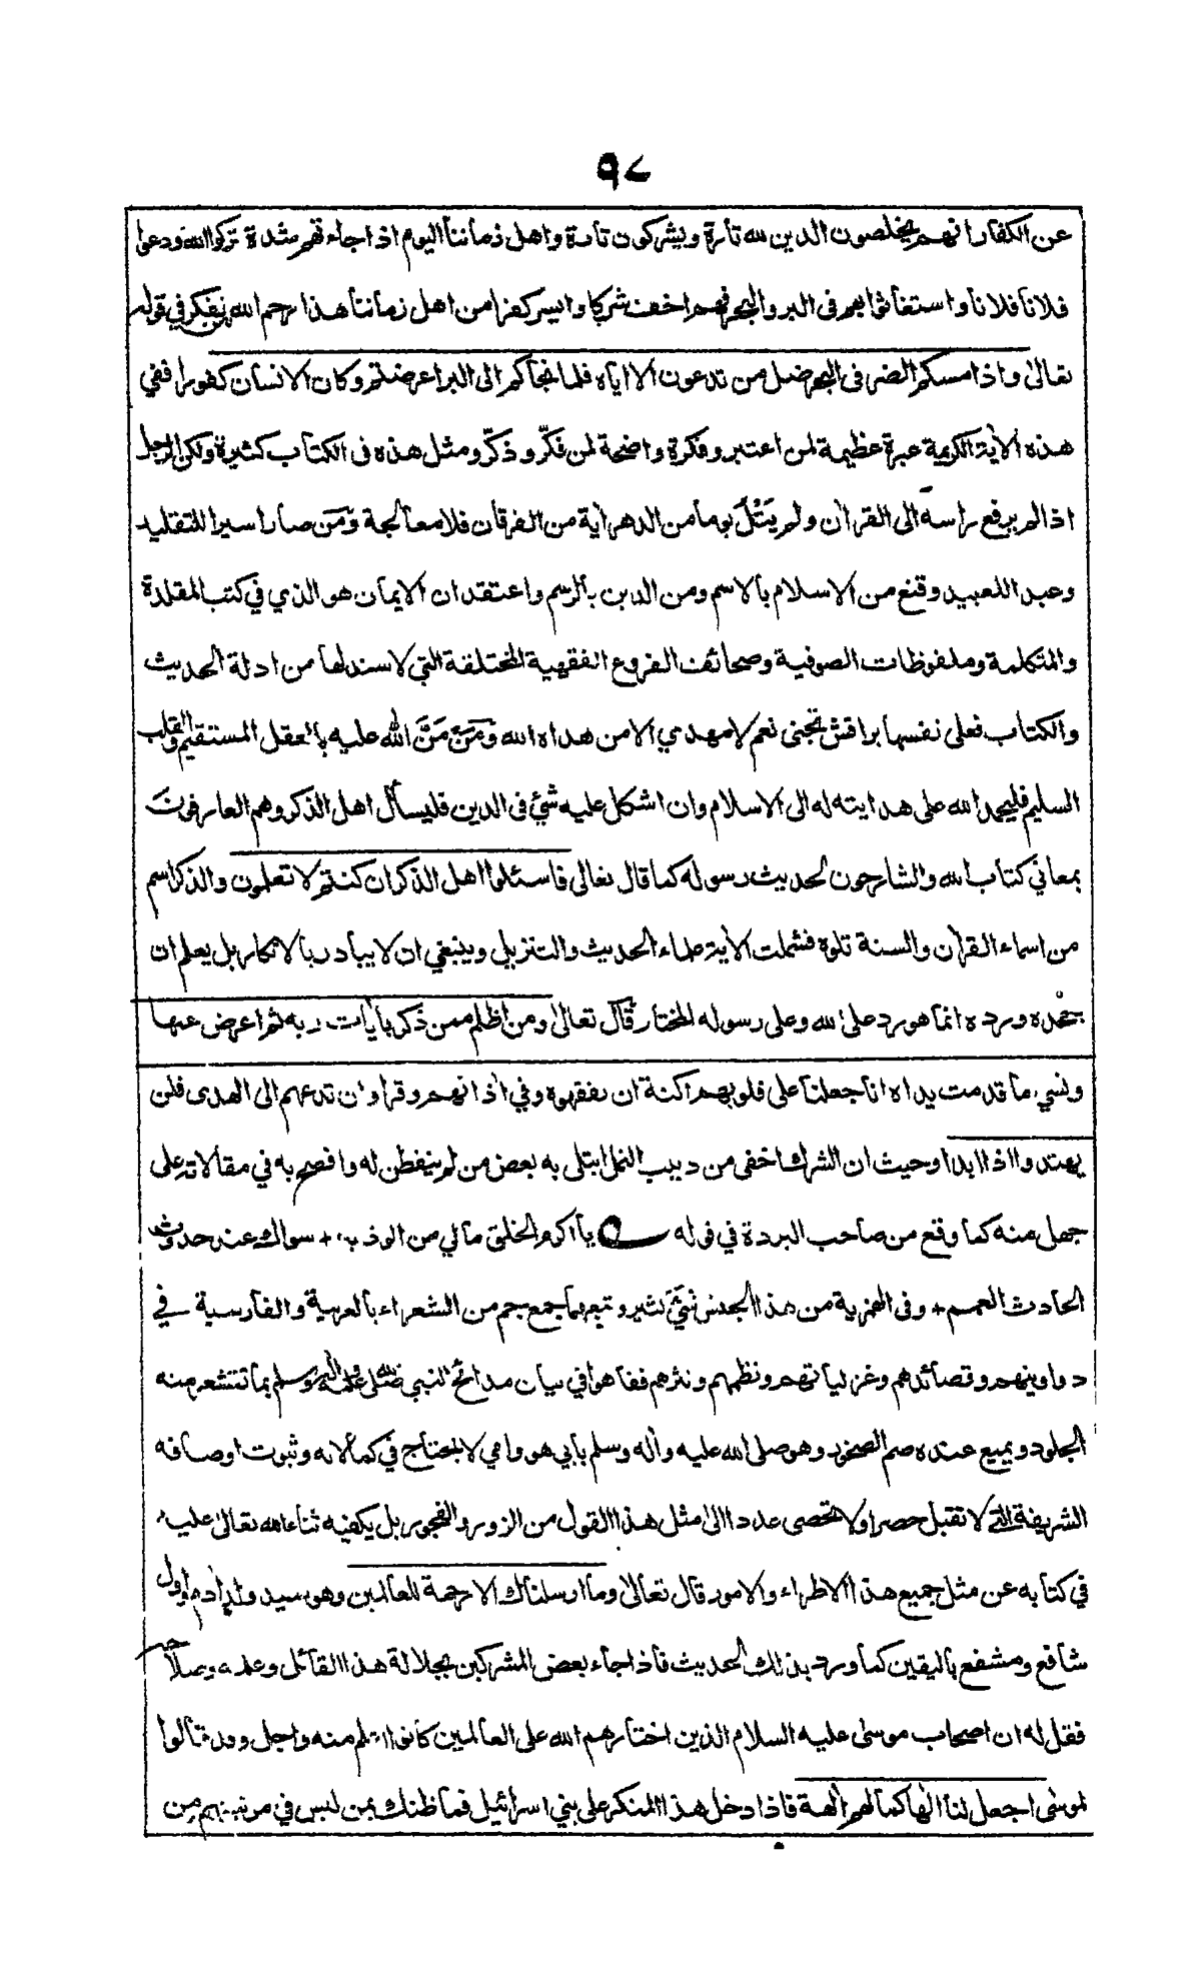 ٩٨
عن الكفار انهم يخلصون الدين لله تارة ويشركون تارة واهل زماننا اليوم اذا جاءتهم شدة تركوا الله ودعوا
فلانا فلانا واستغاثوا بهم فى البر والبحر فهم اخف شركا وايسر كفرا من اهل زماننا هذا رحم الله من يفكر في قوله
تعالى واذا مسكم الضر فى البحر ضل من تدعون الا اياه فلما نجاكم الى البر اعرضتم وكان الانسان كفورا ففي
هذه الأية الكريمة عبرة عظيمة لمن اعتبر وفكرة واضحة لمن فكّر وذكّر ومثل هذه فى الكتاب كثيرة ولكن الرجل
اذا لم يرفع راسه الى القرآن ولم يَتْلُ يوما من الدهر أية من الفرقان فلا معالجة ومَن صار اسيرا للتقليد
وعبدا للعبيد وقنع من الاسلام بالاسم ومن الدين بالرسم واعتقد ان الايمان هو الذي في كتب المقلدة
والمتكلمة وملفوظات الصوفية وصحائف الفروع الفقهية المختلقة التي لا سند لها من ادلة الحديث
والكتاب فعلى نفسها براقش تجنى نعم لا مهدي الا من هداه الله ومَن مَنَّ الله عليه بالعقل المستقيم والقلب
السليم فليحمد الله على هدايته له الى الاسلام وان اشكل عليه شئ فى الدين فليسأل اهل الذكر وهم العارفون
بمعاني كتاب الله والشارحون لحديث رسوله كما قال تعالى فاسئلوا اهل الذكر ان كنتم لا تعلمون والذكر اسم
من اسماء القرأن والسنة تلوه فشملت الأية علماء الحديث والتنزيل وينبغي ان لا يبادر بالانكار بل يعلم ان
جحده ورده انما هو رد على الله وعلى رسوله المختار قال تعالى ومن اظلم ممن ذكر بأيات ربه ثم اعرض عنها
ونسي ما قدمت يداه انا جعلنا على قلوبهم اكنة ان يفقهوه وفي أذانهم وقرا وان تدعهم الى الهدى فلن
يهتدوا اذا ابدا وحيث ان الشرك اخفى من دبيب النمل ابتلى به بعض من لم يتفطن له وافصح به في مقالاته على
جهل منه كما وقع من صاحب البردة في قوله يا اكرم الخلق مالي من الوذ به + سواك عند حدوث
الحادث العمم + وفى الهمزية من هذا الجنس شئ كثير وتبعهما جمع جم من الشعراء بالعربية والفارسية في
دواوينهم وقصائدهم وغزلياتهم ونظمهم ونثرهم ففاهوا في بيان مدائح النبي صلى الله عليه وسلم بما تقشعر منه
الجلود ويميع عنده صم الصخور وهو صلى الله عليه وأله وسلم بأبي هو وامي لا يحتاج في كمالاته وثبوت اوصافه
الشريفة التي لا تقبل حصرا ولا تحصى عددا الى مثل هذا القول من الزور والفجور بل يكفيه ثناء الله تعالى عليه
في كتابه عن مثل جميع هذا الاطراء والامور قال تعالى وما ارسلناك الا رحمة للعالمين وهو سيد ولد أدم واول
شافع ومشفع باليقين كما ورد بذلك الحديث فاذا جاء بعض المشركين بجلالة هذا القائل وعلمه وصلاحه
فقل له ان اصحاب موسى عليه السلام الذين اختارهم الله على العالمين كانوا اعلم منه واجل وقد قالوا
لموسى اجعل لنا الها كما لهم ألهة فاذا دخل هذا المنكر على بني اسرائيل فما ظنك بمن ليس في مرتبتهم من